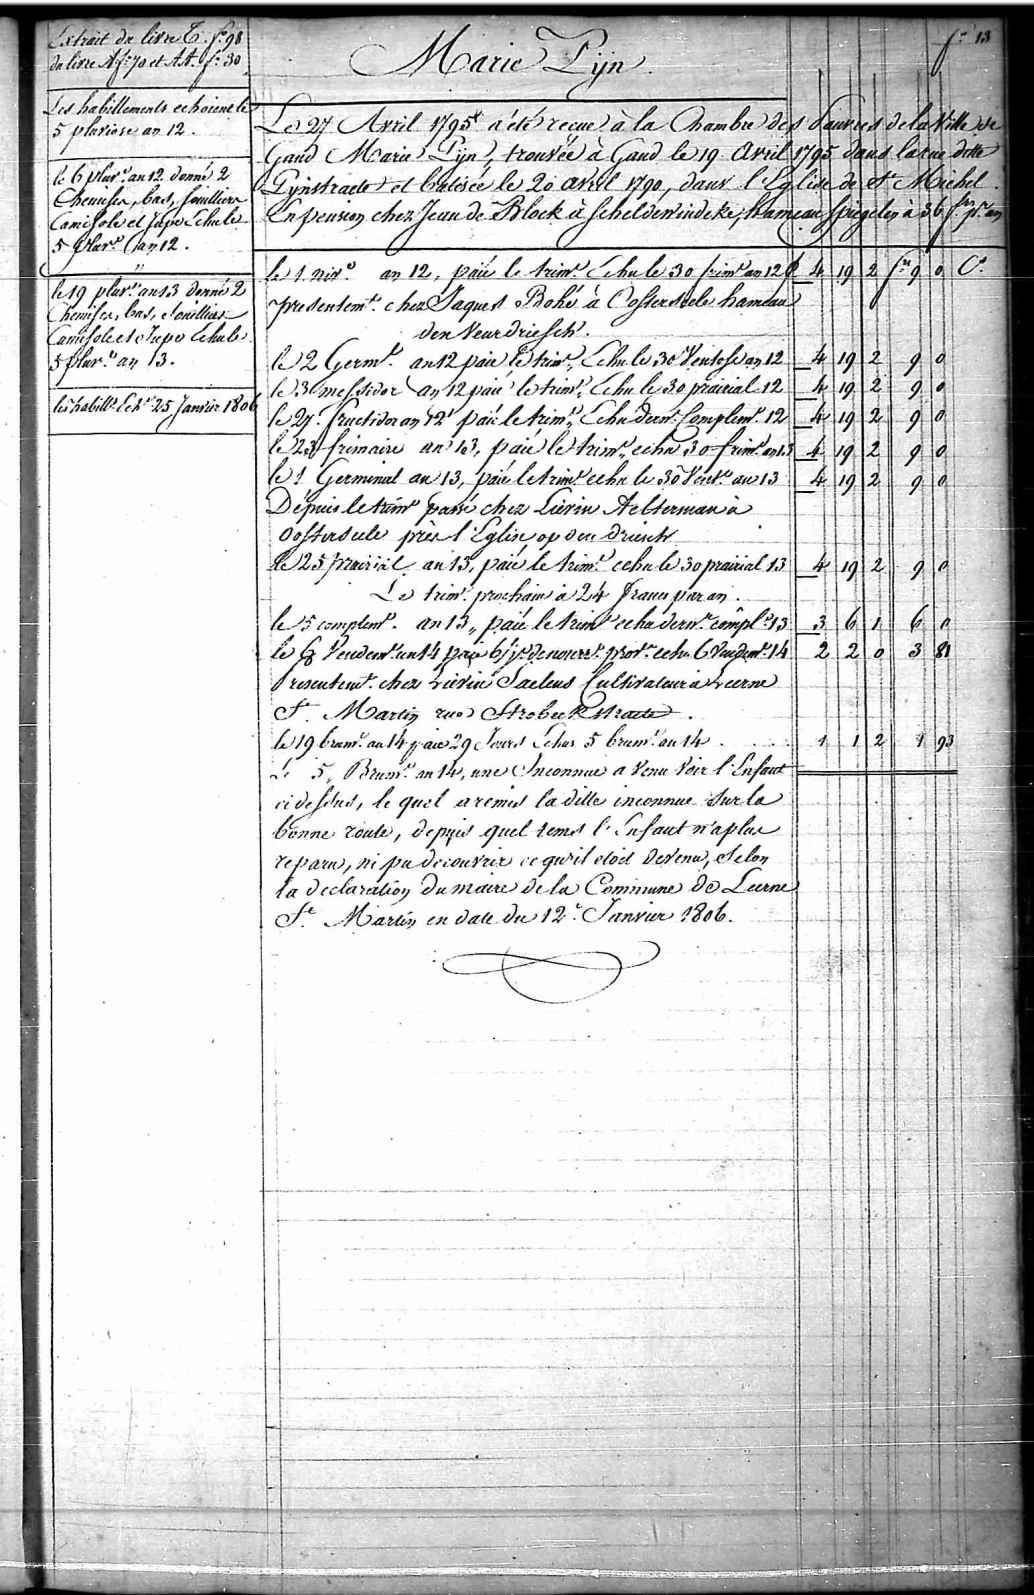 Extrait du livre T. f.º 98
du livre A f.º 70 et AA. f.º 30
Marie Pyn.
f.º 13
Les habillements echoient le
5 pluviose an 12.
le 6 pluv.e an 12. donné 2
Chemises, bas, souilliers
Camisole et jupe Echu le
5 pluv.e an 12.
"
le 19 pluv.e an 13 donné 2
Chemises, bas, souilliers
Camisole et Jupe Echu le
5 pluv.e an 13.
les habill.s Ech.s 25 Janvier 1806
Le 27 Avril 1795 a été reçue à la Chambre des Pauvres de la Ville de
Gand Marie Pyn, trouvée à Gand le 19 Avril 1795 dans la rue dette
Pynstraete et batisée le 20 avril 1790, dans l'Eglise de St Michel.
En pension chez Jean de Block à Scheldewindeke, hameau Spiegelen à 36 fr.s pr. an
le 1. niv.e an 12, païé le trim.e Echu le 30 frim.e an 12 £ 4 19 2 fr.s 9 0 C.s
presentem.t chez Jaques Bohé à Oosterseele hameau
den Meurdriesch.
le 2 Germ.l an 12 païé le trim.e Echu le 30 Ventose an 12 4 19 2 9 0
le 3 messidor an 12 païé le trim.e Echu le 30 prairial 12 4 19 2 9 0
le 27. fructidor an 12 païé le trim.e Echu dern.r Complem.e 12 4 19 2 9 0
le 23 frimaire an 13, païé le trim.e echu 30 frim.e an 13 4 19 2 9 0
le 1 Germinal an 13, païé le trim.e echu le 30 Vent.e an 13 4 19 2 9 0
Dépuis le trim.e passé chez Liévin Aelterman à
Oosterseele près l'Eglise op den driesch
le 25 prairial an 13, païé le trim.e echu le 30 prairial 13 4 19 2 9 0
Le trim.e prochain à 24 francs par an.
le 5 complem.e an 13,, païé le trim.e echu dern.r compl.e 13 3 6 1 6 0
le 8 Vendem.e an 14 païé 6 j.rs de nourr.e prov.e echu 6 Vendem.e 14 2 2 0 3 81
Presentem.t chez Liévin Saelens Cultivateur à Leerne
St. Martin rue Strobeekstraete.
le 19 brum.e an 14 païé 29 Jours Echus 5 brum.e an 14. 1 1 2 1 93
Le 5,, Brum.e an 14, une Inconnue a venu voir l'Enfant
ci dessus, le quel a remis la ditte inconnue sur la
bonne route, depuis quel tems l'Enfant n'a plus
reparu, ni pu decouvrir ce qu'il etoit devenu, selon
la declaration du maire de la Commune de Leerne
St. Martin en date du 12e Janvier 1806.